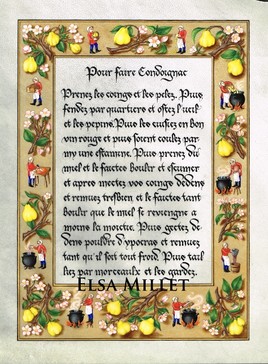 Pour faire Condoignac
Prenez les coings et les pelez. Puis
fendez par quartiers et ostez l'ueil
et les pepins. Puis les cuisiez en bon
vin rouge et puis soient coulez par
my une estamine. Puis prenez du
miel et le faictes boulir et escumer
et apres mectez vos coings dedens
et remuez tresbien. et le faictes tant
boulir que le miel se reviengne a
moins la moictie. Puis gectez de
dens pouldre d'ypocras et remuez
tant qu'il soit tout froid. Puis tail
liez par morceaulx et les gardez.
Elsa Millet